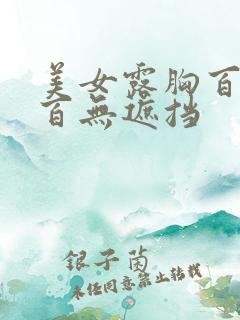 美女露胸百
百無遮挡
银子茵
未经同意禁止转载